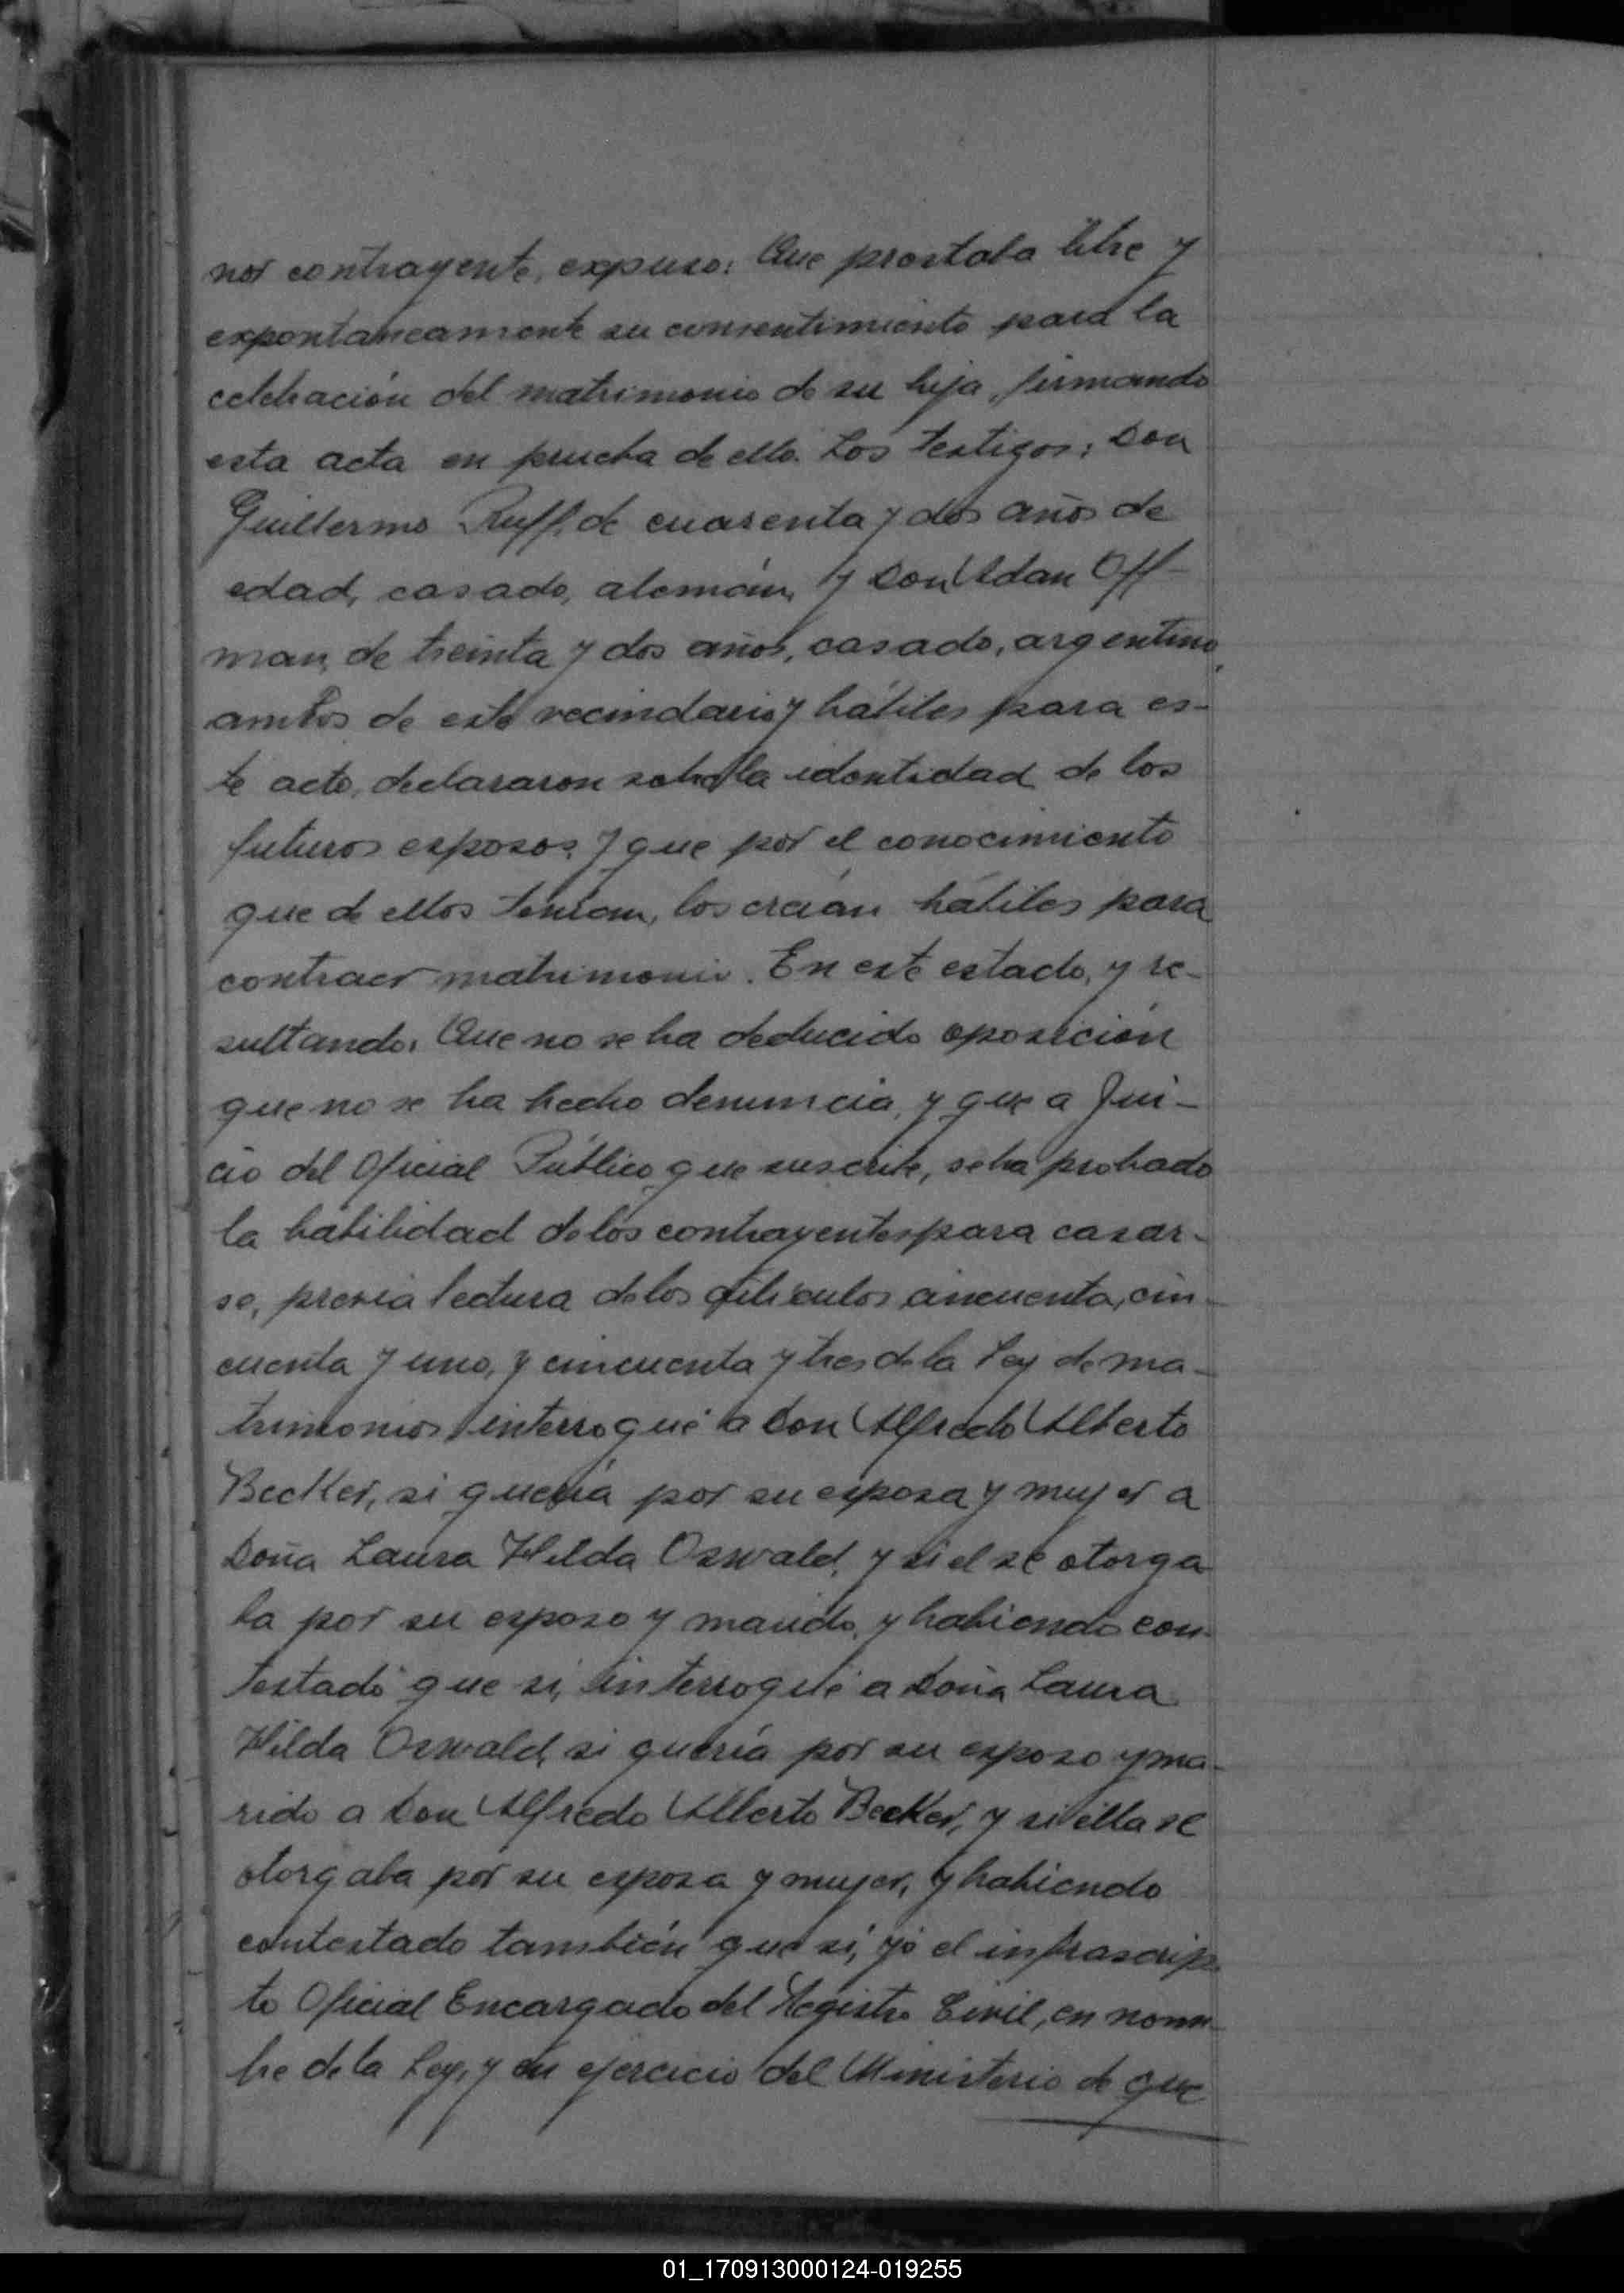 nor contrayente, expuso: Que prestaba libre y
expontaneamente su consentimiento para la
celebración del matrimonio de su hija, firmando
esta acta en prueba de ello. Los testigos: Don
Guillermo Ruff, de cuarenta y dos años de
edad, casado, alemán, y Don Adan Off-
man, de treinta y dos años, casado, argentino,
ambos de este vecindario y hábiles para es-
te acto, declararon sobre la identidad de los
futuros esposos, y que por el conocimiento
que de ellos tenian, los creían hábiles para
contraer matrimonio. En este estado, y re-
sultando: Que no se ha deducido oposición
que no se ha hecho denuncia, y que a jui-
cio del Oficial Público que suscribe, se ha probado
la habilidad de los contrayentes para casar-
se, previa lectura de los artículos cincuenta, cin-
cuenta y uno, y cincuenta y tres de la Ley de ma-
trimonios, interrogué a Don Alfredo Alberto
Becker, si quería por su esposa y mujer a
Doña Laura Hilda Oswald, y si el se otorga
ba por su esposo y marido, y habiendo con-
testado que si, interrogué a Doña Laura
Hilda Oswald, si quería por su esposo y ma-
rido a Don Alfredo Alberto Becker, y si ella se
otorgaba por su esposa y mujer, y habiendo
contestado también que sí, yó el infrascrip-
to Oficial Encargado del Registro Civil, en nom-
bre de la Ley, y en ejercicio del Ministerio de que
01_170913000124-019255